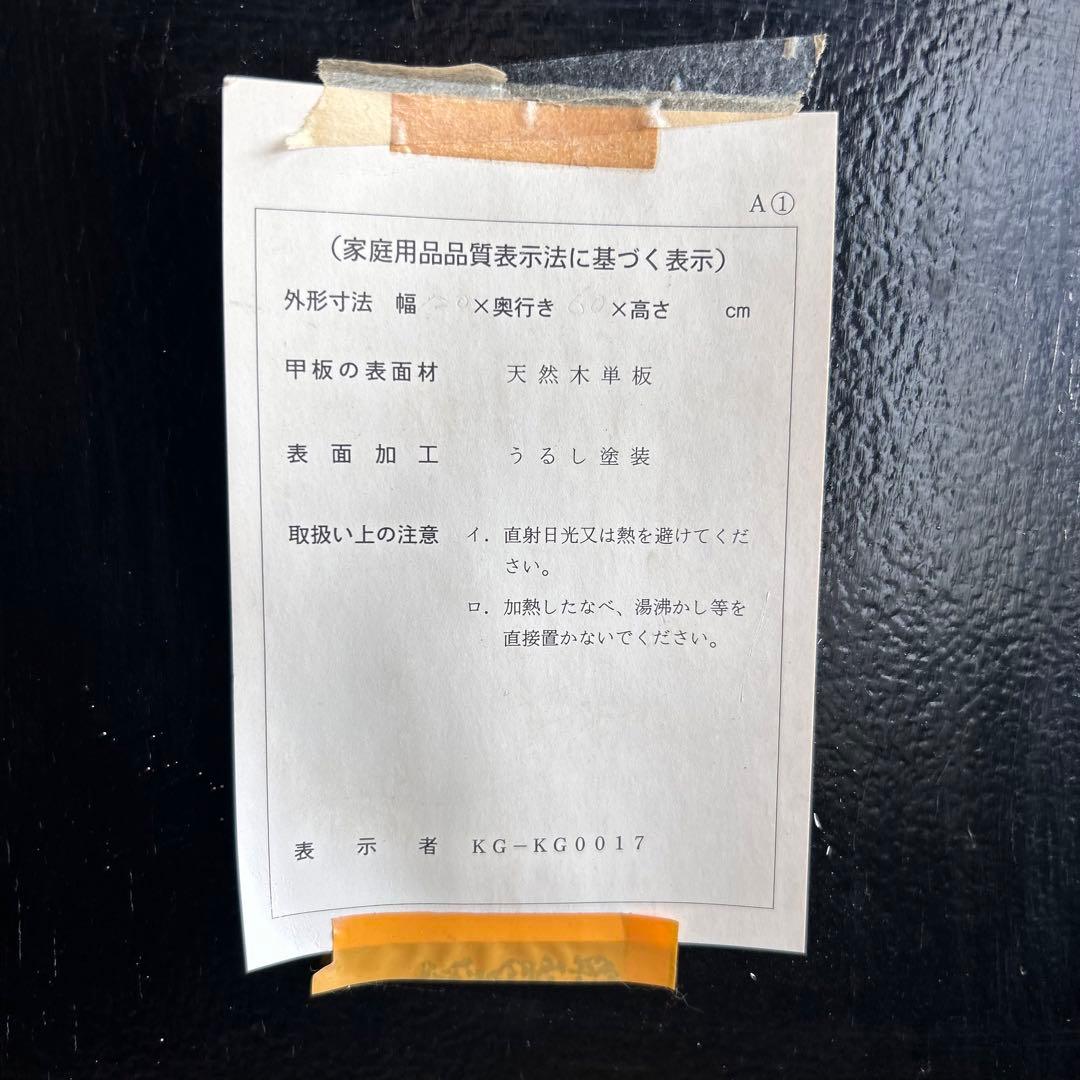 A①
(家庭用品品質表示法に基づく表示)
外形寸法 幅 ×奥行き 60 ×高さ cm
甲板の表面材 天然木単板
表面加工 うるし塗装
取扱い上の注意 イ. 直射日光又は熱を避けてくだ
さい。
ロ. 加熱したなべ、湯沸かし等を
直接置かないでください。
表示者 KG-KG0017